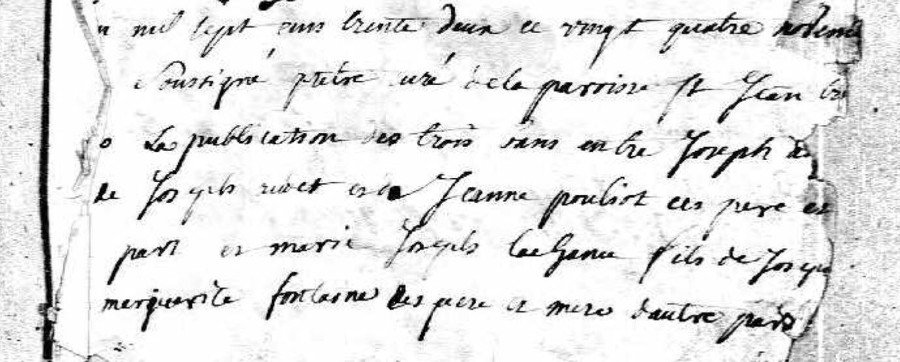 mil sept cens trente deux ce vingt quatre novemb
soussigné ptetre curé de la paroisse st Jean
La publication des trois bans entre Joseph
de Joseph rivet et de Jeanne pouliot ces pere et
part et marie Joseph lachance fils de Joseph
marguerite fontaine ses pere et mere d'autre part